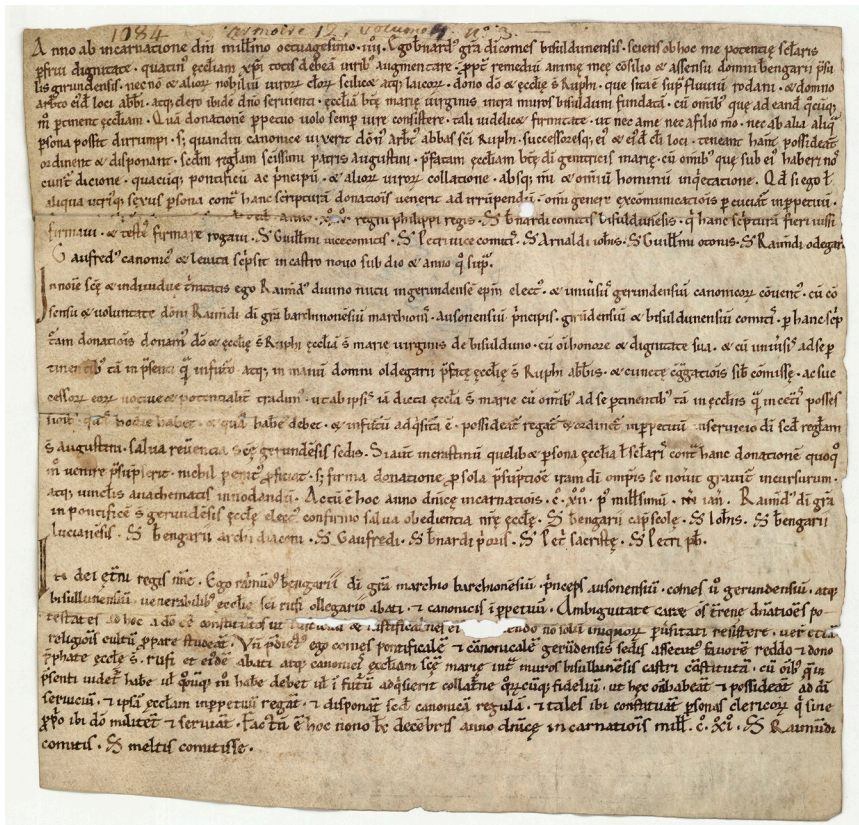 1084 armoire 12, volume 4 nº 3.
Anno ab incarnatione dñi millno octuagesimo · iiij · Ego bnard' gra di comes bisuldunensis · sciens ob hoc me potencie seclaris
pfrui dignitate · quatin' eccliam xpi totis debeā uirib' augmentare · ppt remediū anime mee cōsilio & assensu domni bengarii psu
lis girundensis · nec nō & alior nobiliū uiror clor scilicæ atq; laicor · dono dō & ecclie s̄ Ruphi · que sita ē sup fluuiū rodani · & domno
arbto eidē loci abbi · atq; clero ibidē dno seruienti · eccliā bte marie uirginis, intra muros bisuldunū fundatā · cū omib' que ad eand quicūq;
m ptinent eccliam · Quā donationē ppetuo uolo semp iure consistere · tali uidelicæ firmitate · ut nec a me nec a filio mo · nec ab alia aliq
psona possit dirrumpi · s; quandiu canonice uixerit don' arbt' abbas sci Ruphi · successoresq; ei' & eidē loci · teneant hanc possideāt
ordinent & disponant · scdm reglam scissimi patris augustini · pfatam eccliam bte di genitricis marie · cū omib' que sub ei' haberi no
cunt' dicione · quacūq; pontificū ac pncipū · & alior uiror collatione · absq; mi & omiū hominū inqetatione · Qd si ego l
aliqua utriq; sexus psona cont hanc scripturā donatiois uenerit ad irrūpendū · omi genere excomunicatiois pcuciat' inppetuū ·
anno · xº · xº · regni philippi regis · S bnardi comitis bisuldunēsis · q hanc scpturā fieri iussi
firmaui · & teste firmare rogaui · S Guillmi uicecomitis · S Petri uice comit' · S Arnaldi iohis · S Guillmi otonis · S Raimdi odegar
Gaufred' canonic' & leuita scpsit in castro nouo sub die & anno q sup' ·
In noie scē & indiuidue trinitatis ego Raimd' diuino nutu in gerundensē epm elect' · & uniūsi' gerundensiū canonicor cōuent' · cū cō
sensu & uoluntate dōni Raimdi di gra barchinonēsiū marchiom · ausonensiū pncipis · girūdensiū & bisuldunensiū comit' · p hanc scp
tam donatiois donam' dō & ecclie s̄ Ruphi eccliā s̄ marie uirginis de bisulduno · cū oi honore & dignitate sua · & cū uniūsi' ad se p
tinentib' tā in psenti q in futuro · atq; in manū domni oldegarii pfate ecclie s̄ Ruphi abbis · & cuncte cggatiois sibi cōmisse · ac suc
cessorū eor uotiue & potencialit tradim' · ut ab ipsi' iā dicta eccla s̄ marie cū omib' ad se ptinentib' tā in ecclis q in cetis posses
hodie habet · & qua habe debet · & in futuū adqisita ē · possideāt regāt & ordinēt in ppetuum seruicio di scd reglam
s̄ augustini · salua reuencia sce gerundēsis sedis · Si aut in crastinū quelib& psona ecclia l seclari cont hanc donationē quoq
m uenire psūpserit · nichil penit' pficiat · s; firma donatione p sola psūptiōe iram di omptis se nouit grauit incursurum ·
atq; uinclis anathematis innodandū · Actū ē hoc anno dnice incarnatiois · c̄ · xij · p' millsimū · iā · Raimd' di gra
in pontificē s̄ gerundēsis eccle elect' confirmo salua obedientia nre eccle · S bengarii capscole · S Iohis · S bengarii
lucianēsis · S bengarii archi diaconi · S Gaufredi · S bnardi poris · S Pet' sacriste · S Petri pb ·
In dei etni regis nne · Ego raimūd' bengarii di gra marchio barchionēsiū · pnceps ausonensiū · comes ū gerundensiū · atq;
bisullunensiū uenerabilib' ecclie sci rufi ollegario abati · & canonicis ippetuū · Ambiguitate carere os trene dnatioēs po-
testatē ad hoc a dō ee constitutos ut & iustificationes ei noi iniquor puūsitati resistere · uerū etiā
religiosis cultū ppare studeāt · Vn pdict' ego comes pontificale & canonicale gerūdensis sedis affectus fauorē reddo & dono
pphate eccle s̄ · rufi et eidē abati atq; canonici eccliam sce marie int muros bisullunēsis castri cōstitutā · cū oib' q in
psenti uidet' habe ul qōūq; m habe debet ul i futū adqsierit collatne qrūcūq; fideliū · ut hec oia habeāt & possideāt ad di
seruiciū · & ipsā ecclam inppetuū regāt · & disponāt scd canonicā regulā · & tales ibi constituāt psonas clericor q sine
pprio ibi dō militēt & seruiāt · Factū ē hoc nono kl decēbris anno dnice in carnatiois mill · c̄ · xi · S Raimūdi
comitis · S meltis comitisse ·